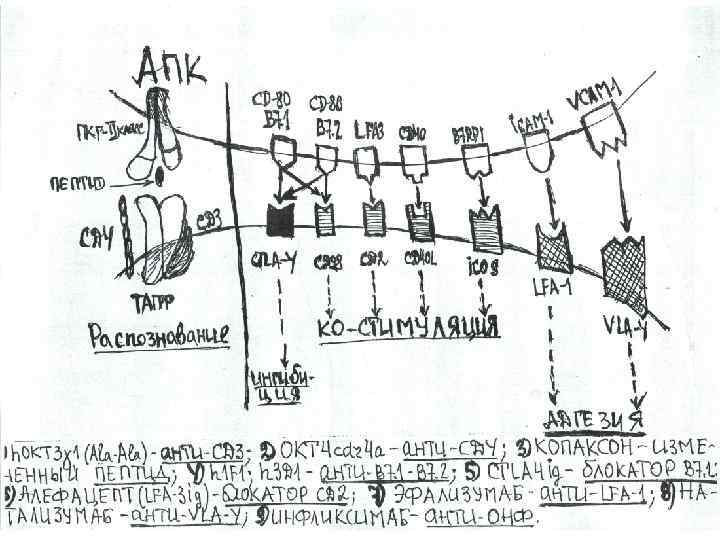 АПК
CD-80 CD-80
B7.1 B7.2 LFA3 CD40 B7RP1 iCAM-1 VCAM-1
ГКГ-II класс
ПЕПТИД
CD4 CD3
CTLA-4 CD28 CD2 CD40L iCOS LFA-1 VLA-4
ТАГРР
Распознавание
КО-СТИМУЛЯЦИЯ
ИНГИБИ-
ЦИЯ
АДГЕЗИЯ
1) hOKT3γ1 (Ala-Ala) - анти-CD3; 2) OKT4cdr4a - анти-CD4; 3) КОПАКСОН - ИЗМЕ-
НЕННЫЙ ПЕПТИД; 4) h1F1; h3D1 - анти-B7.1-B7.2; 5) CTLA4ig - БЛОКАТОР B7.1;
6) АЛЕФАЦЕПТ (LFA-3ig) - БЛОКАТОР CD2; 7) ЭФАЛИЗУМАБ - анти-LFA-1; 8) НА-
ТАЛИЗУМАБ - анти-VLA-4; 9) ИНФЛИКСИМАБ - анти-ОНФ.